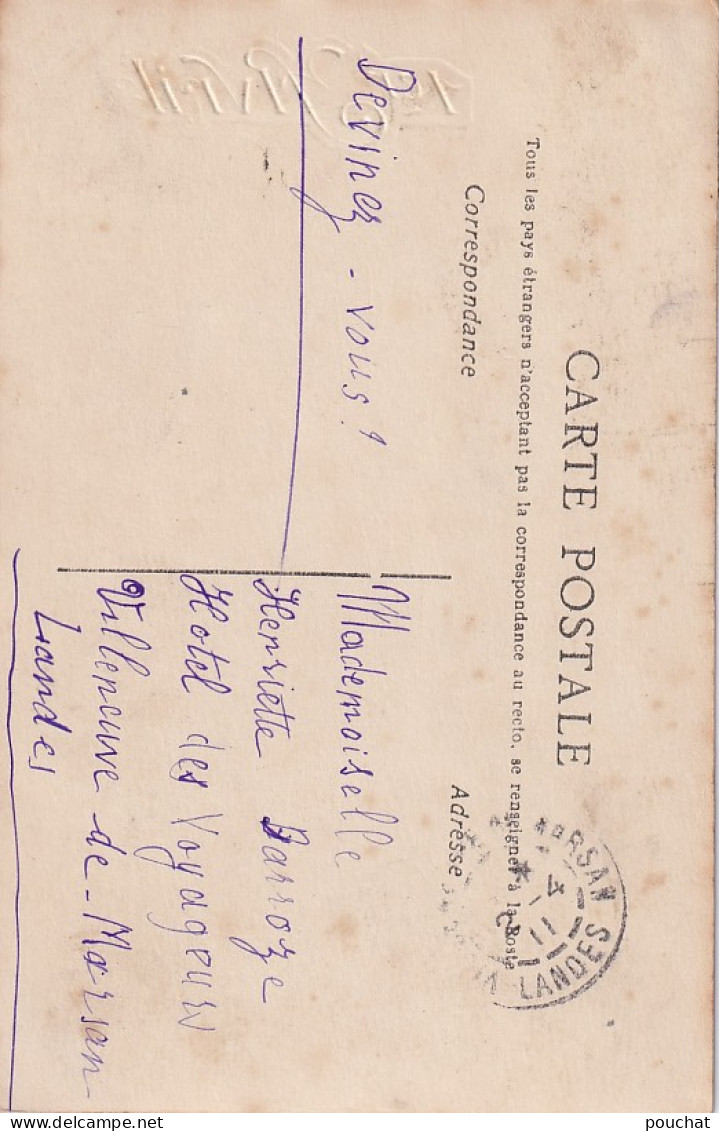 CARTE POSTALE
Tous les pays étrangers n'acceptant pas la correspondance au recto, se renseigner à la Poste
Correspondance
Adresse
Devinez-vous?
Mademoiselle
Henriette Darroze
Hotel des Voyageurs
Villeneuve-de-Marsan
Landes
1er Avril
MARSAN
11
LANDES
pouchat